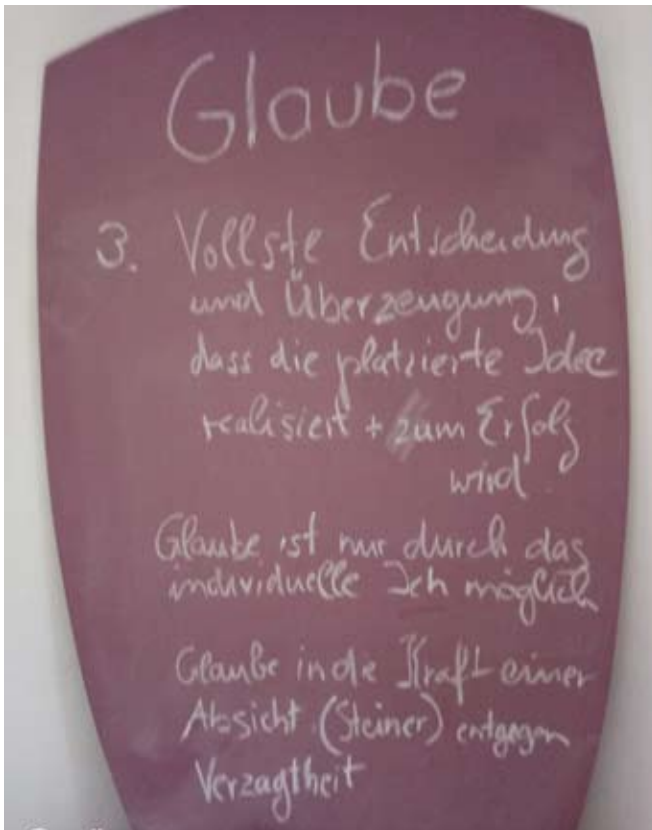 Glaube
3. Vollste Entscheidung
und Überzeugung,
dass die platzierte Idee
realisiert + zum Erfolg
wird
Glaube ist nur durch das
individuelle Ich möglich
Glaube in die Kraft einer
Absicht (Steiner) entgegen
Verzagtheit